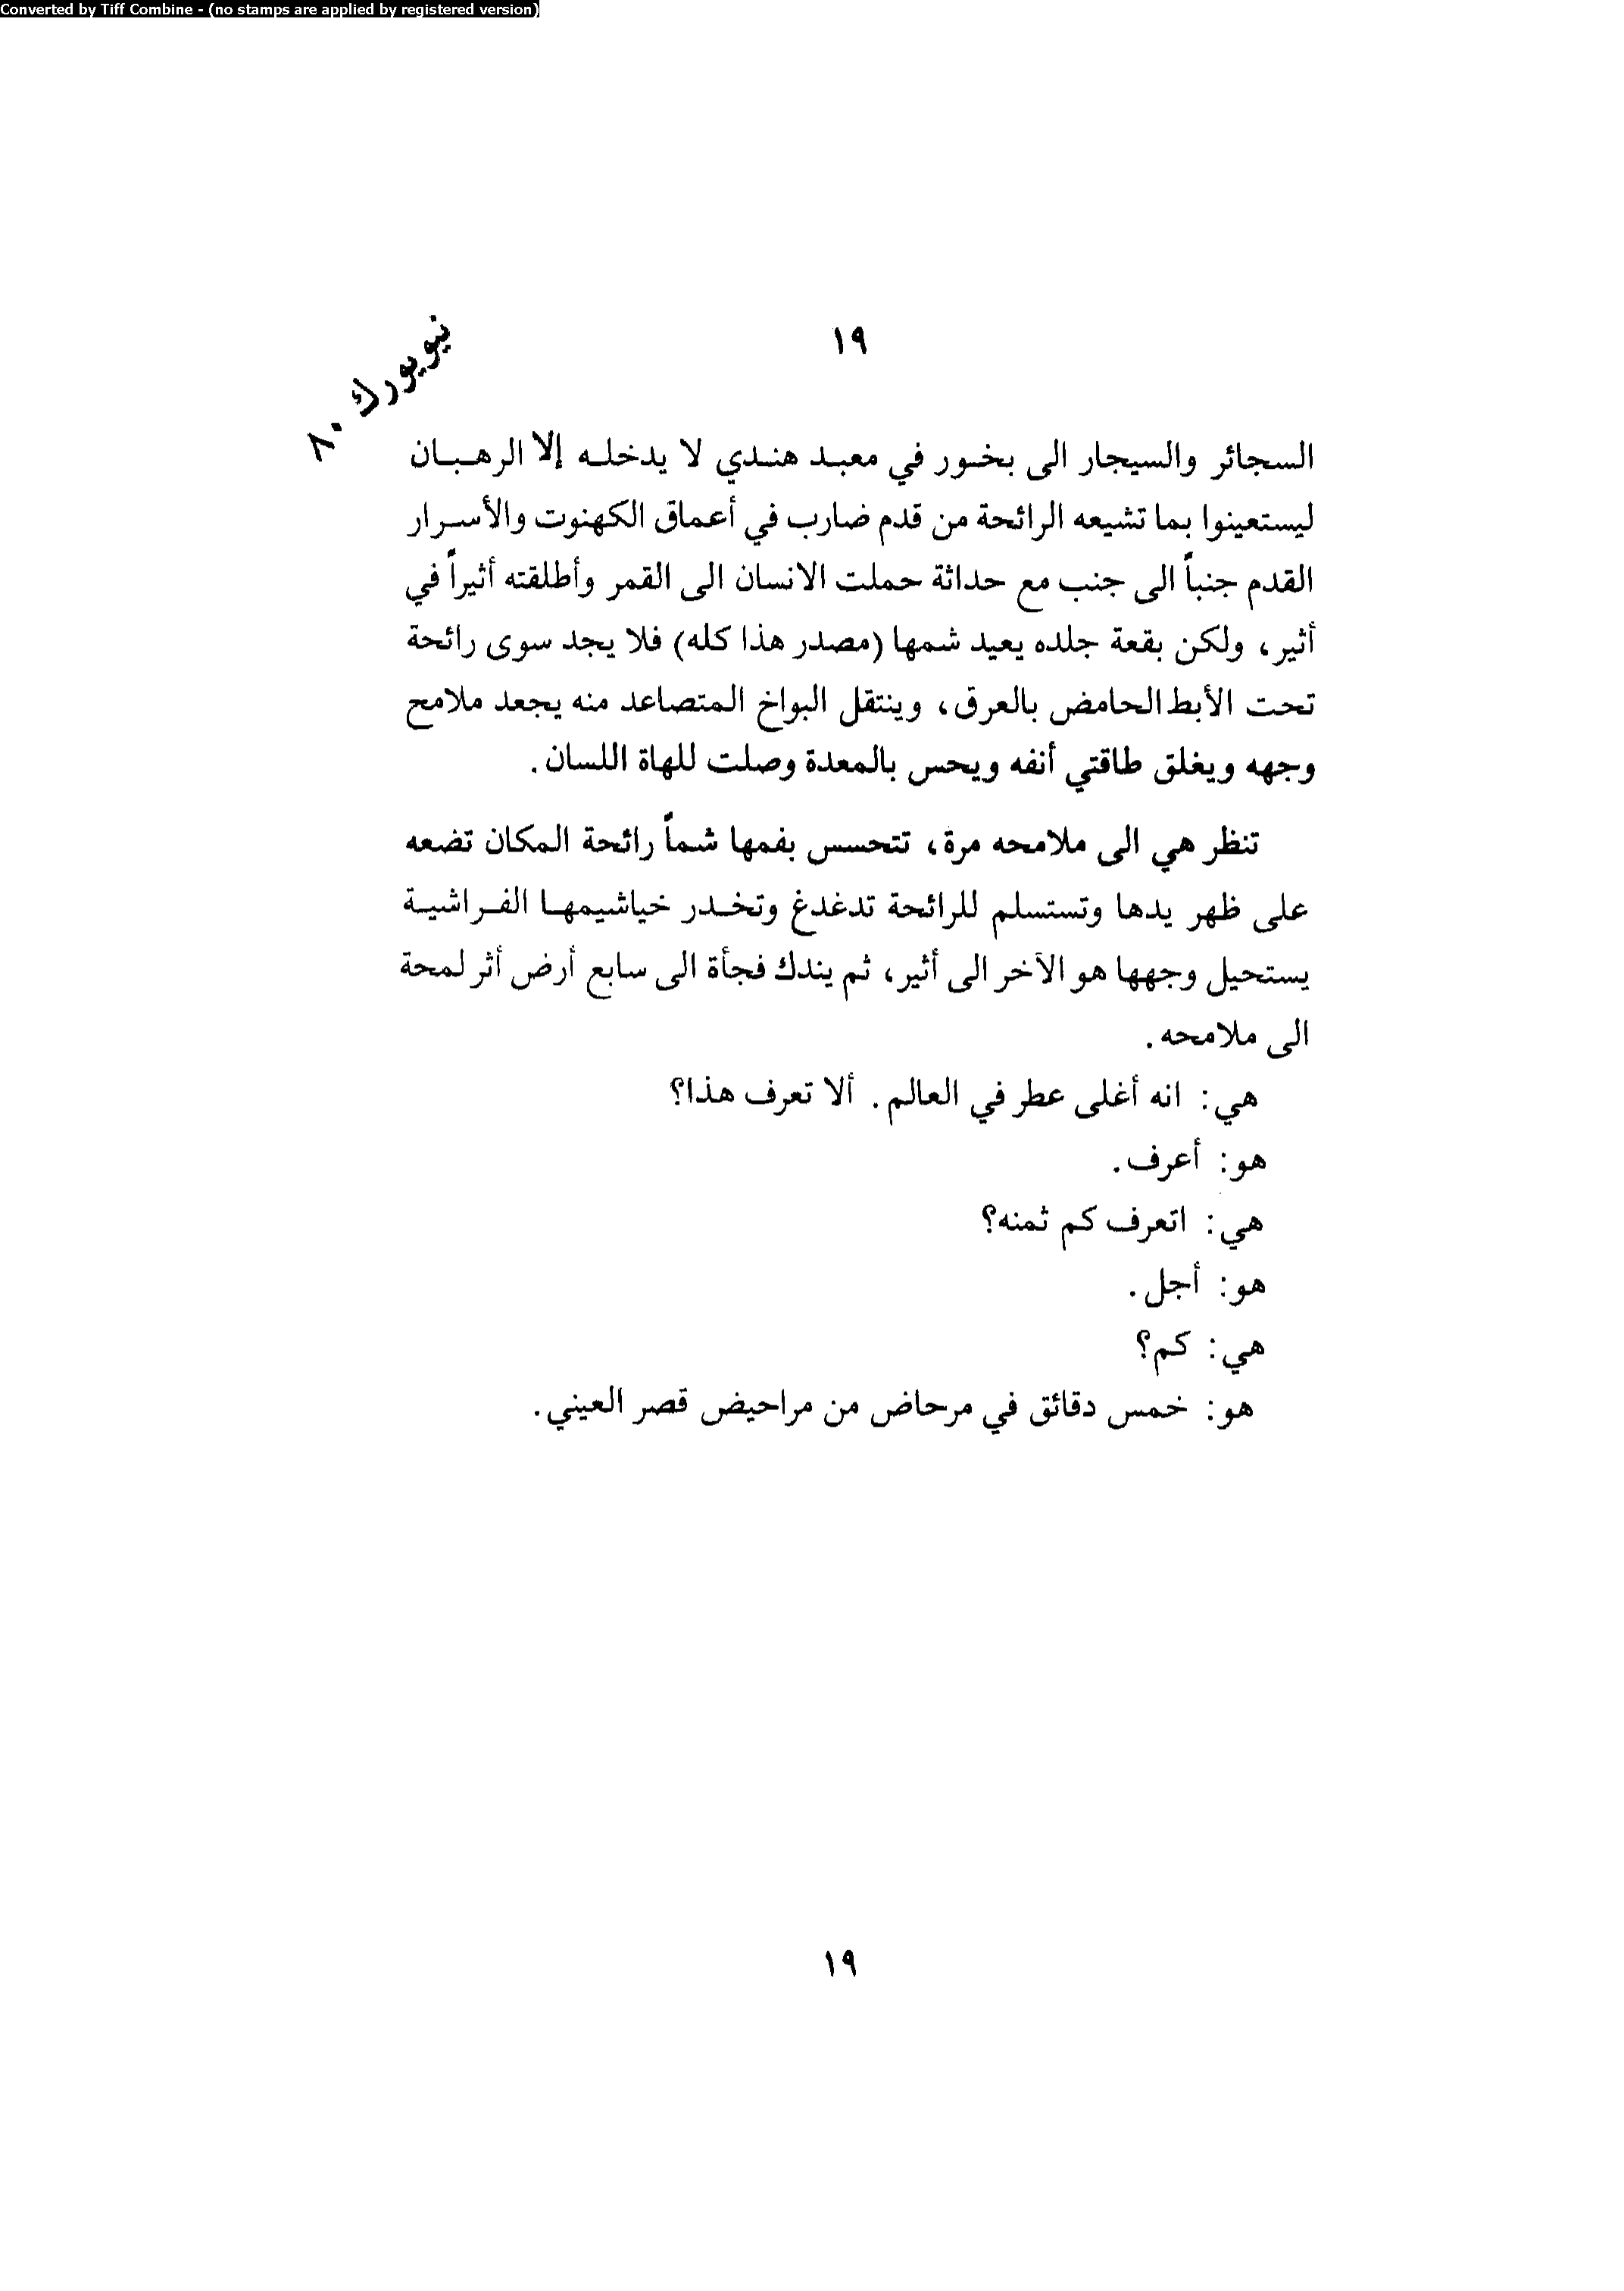 Converted by Tiff Combine - (no stamps are applied by registered version)
١٩
نيويورك ٨٠
السجائر والسيجار الى بخور في معبد هندي لا يدخله إلا الرهبان
ليستعينوا بما تشيعه الرائحة من قدم ضارب في أعماق الكهنوت والأسرار
القدم جنباً الى جنب مع حداثة حملت الانسان الى القمر وأطلقته أثيراً في
أثير، ولكن بقعة جلده يعيد شمها (مصدر هذا كله) فلا يجد سوى رائحة
تحت الأبط الحامض بالعرق، وينتقل البواخ المتصاعد منه يجعد ملامح
وجهه ويغلق طاقتي أنفه ويحس بالمعدة وصلت للهاة اللسان.
تنظر هي الى ملامحه مرة، تتحسس بفمها شماً رائحة المكان تضعه
على ظهر يدها وتستسلم للرائحة تدغدغ وتخدر خياشيمها الفراشية
يستحيل وجهها هو الآخر الى أثير، ثم يندك فجأة الى سابع أرض أثر لمحة
الى ملامحه.
هي: انه أغلى عطر في العالم. ألا تعرف هذا؟
هو: أعرف.
هي: اتعرف كم ثمنه؟
هو: أجل.
هي: كم؟
هو: خمس دقائق في مرحاض من مراحيض قصر العيني.
١٩